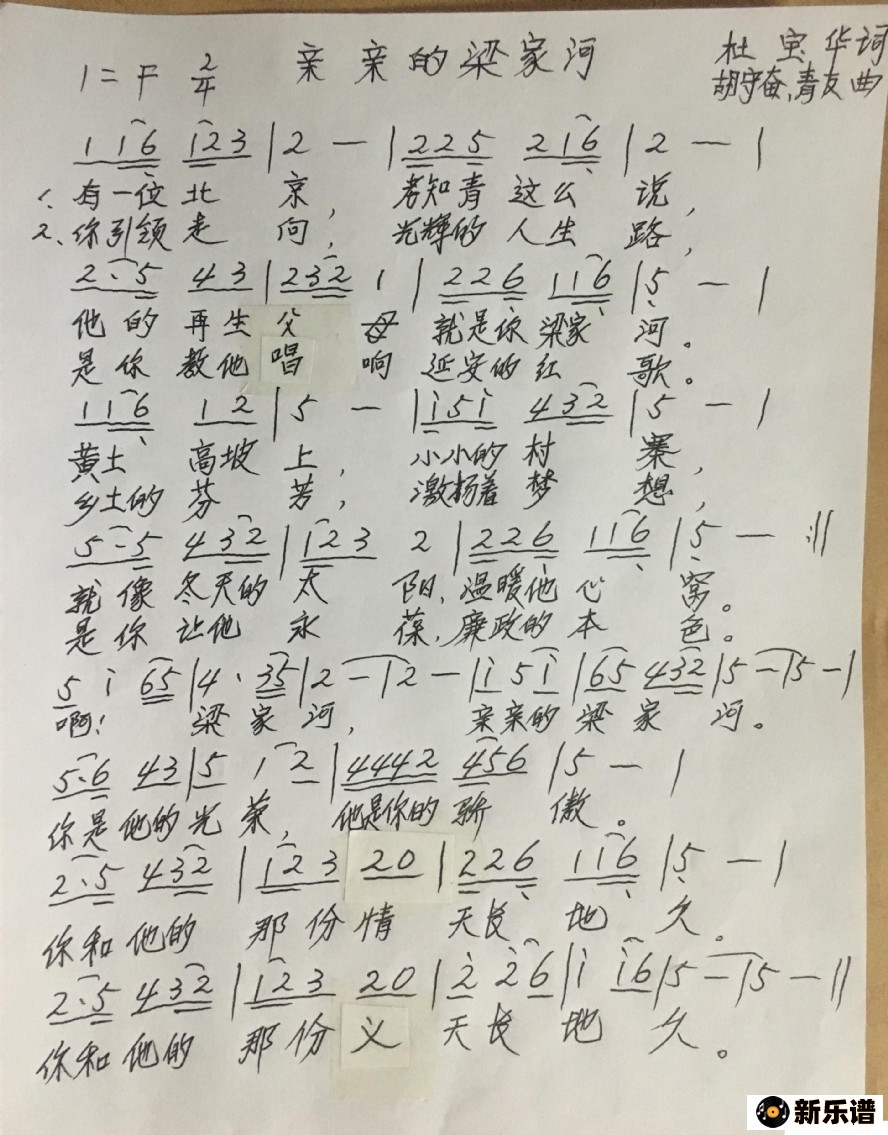 亲亲的梁家河
1=F 2/4
杜宝华词
胡守奋,青友曲
1 1 6 1 2 3 | 2 — | 2 2 5 2 1 6 | 2 — |
1、有一位北京,老知青这么说,
2、你引领走向,光辉的人生路,
2·5 4 3 | 2 3 2 1 | 2 2 6 1 1 6 | 5 — |
他的再生父母就是你梁家河。
是你教他唱响延安的红歌。
1 1 6 1 2 | 5 — | i 5 i 4 3 2 | 5 — |
黄土高坡上,小小的村寨,
乡土的芬芳,激扬着梦想,
5·5 4 3 2 | 1 2 3 2 | 2 2 6 1 1 6 | 5 — :||
就像冬天的太阳,温暖他心窝。
是你让他永葆,廉政的本色。
5 i 6 5 | 4· 3 5 | 2 — | 2 — | i 5 i | 6 5 4 3 2 | 5 — | 5 — |
啊!梁家河,亲亲的梁家河。
5·6 4 3 | 5 1 2 | 4 4 4 2 4 5 6 | 5 — |
你是他的光荣,他是你的骄傲。
2·5 4 3 2 | 1 2 3 2 0 | 2 2 6 1 1 6 | 5 — |
你和他的那份情天长地久。
2·5 4 3 2 | 1 2 3 2 0 | 2 2 6 | i i 6 | 5 — | 5 — ||
你和他的那份义天长地久。
新乐谱